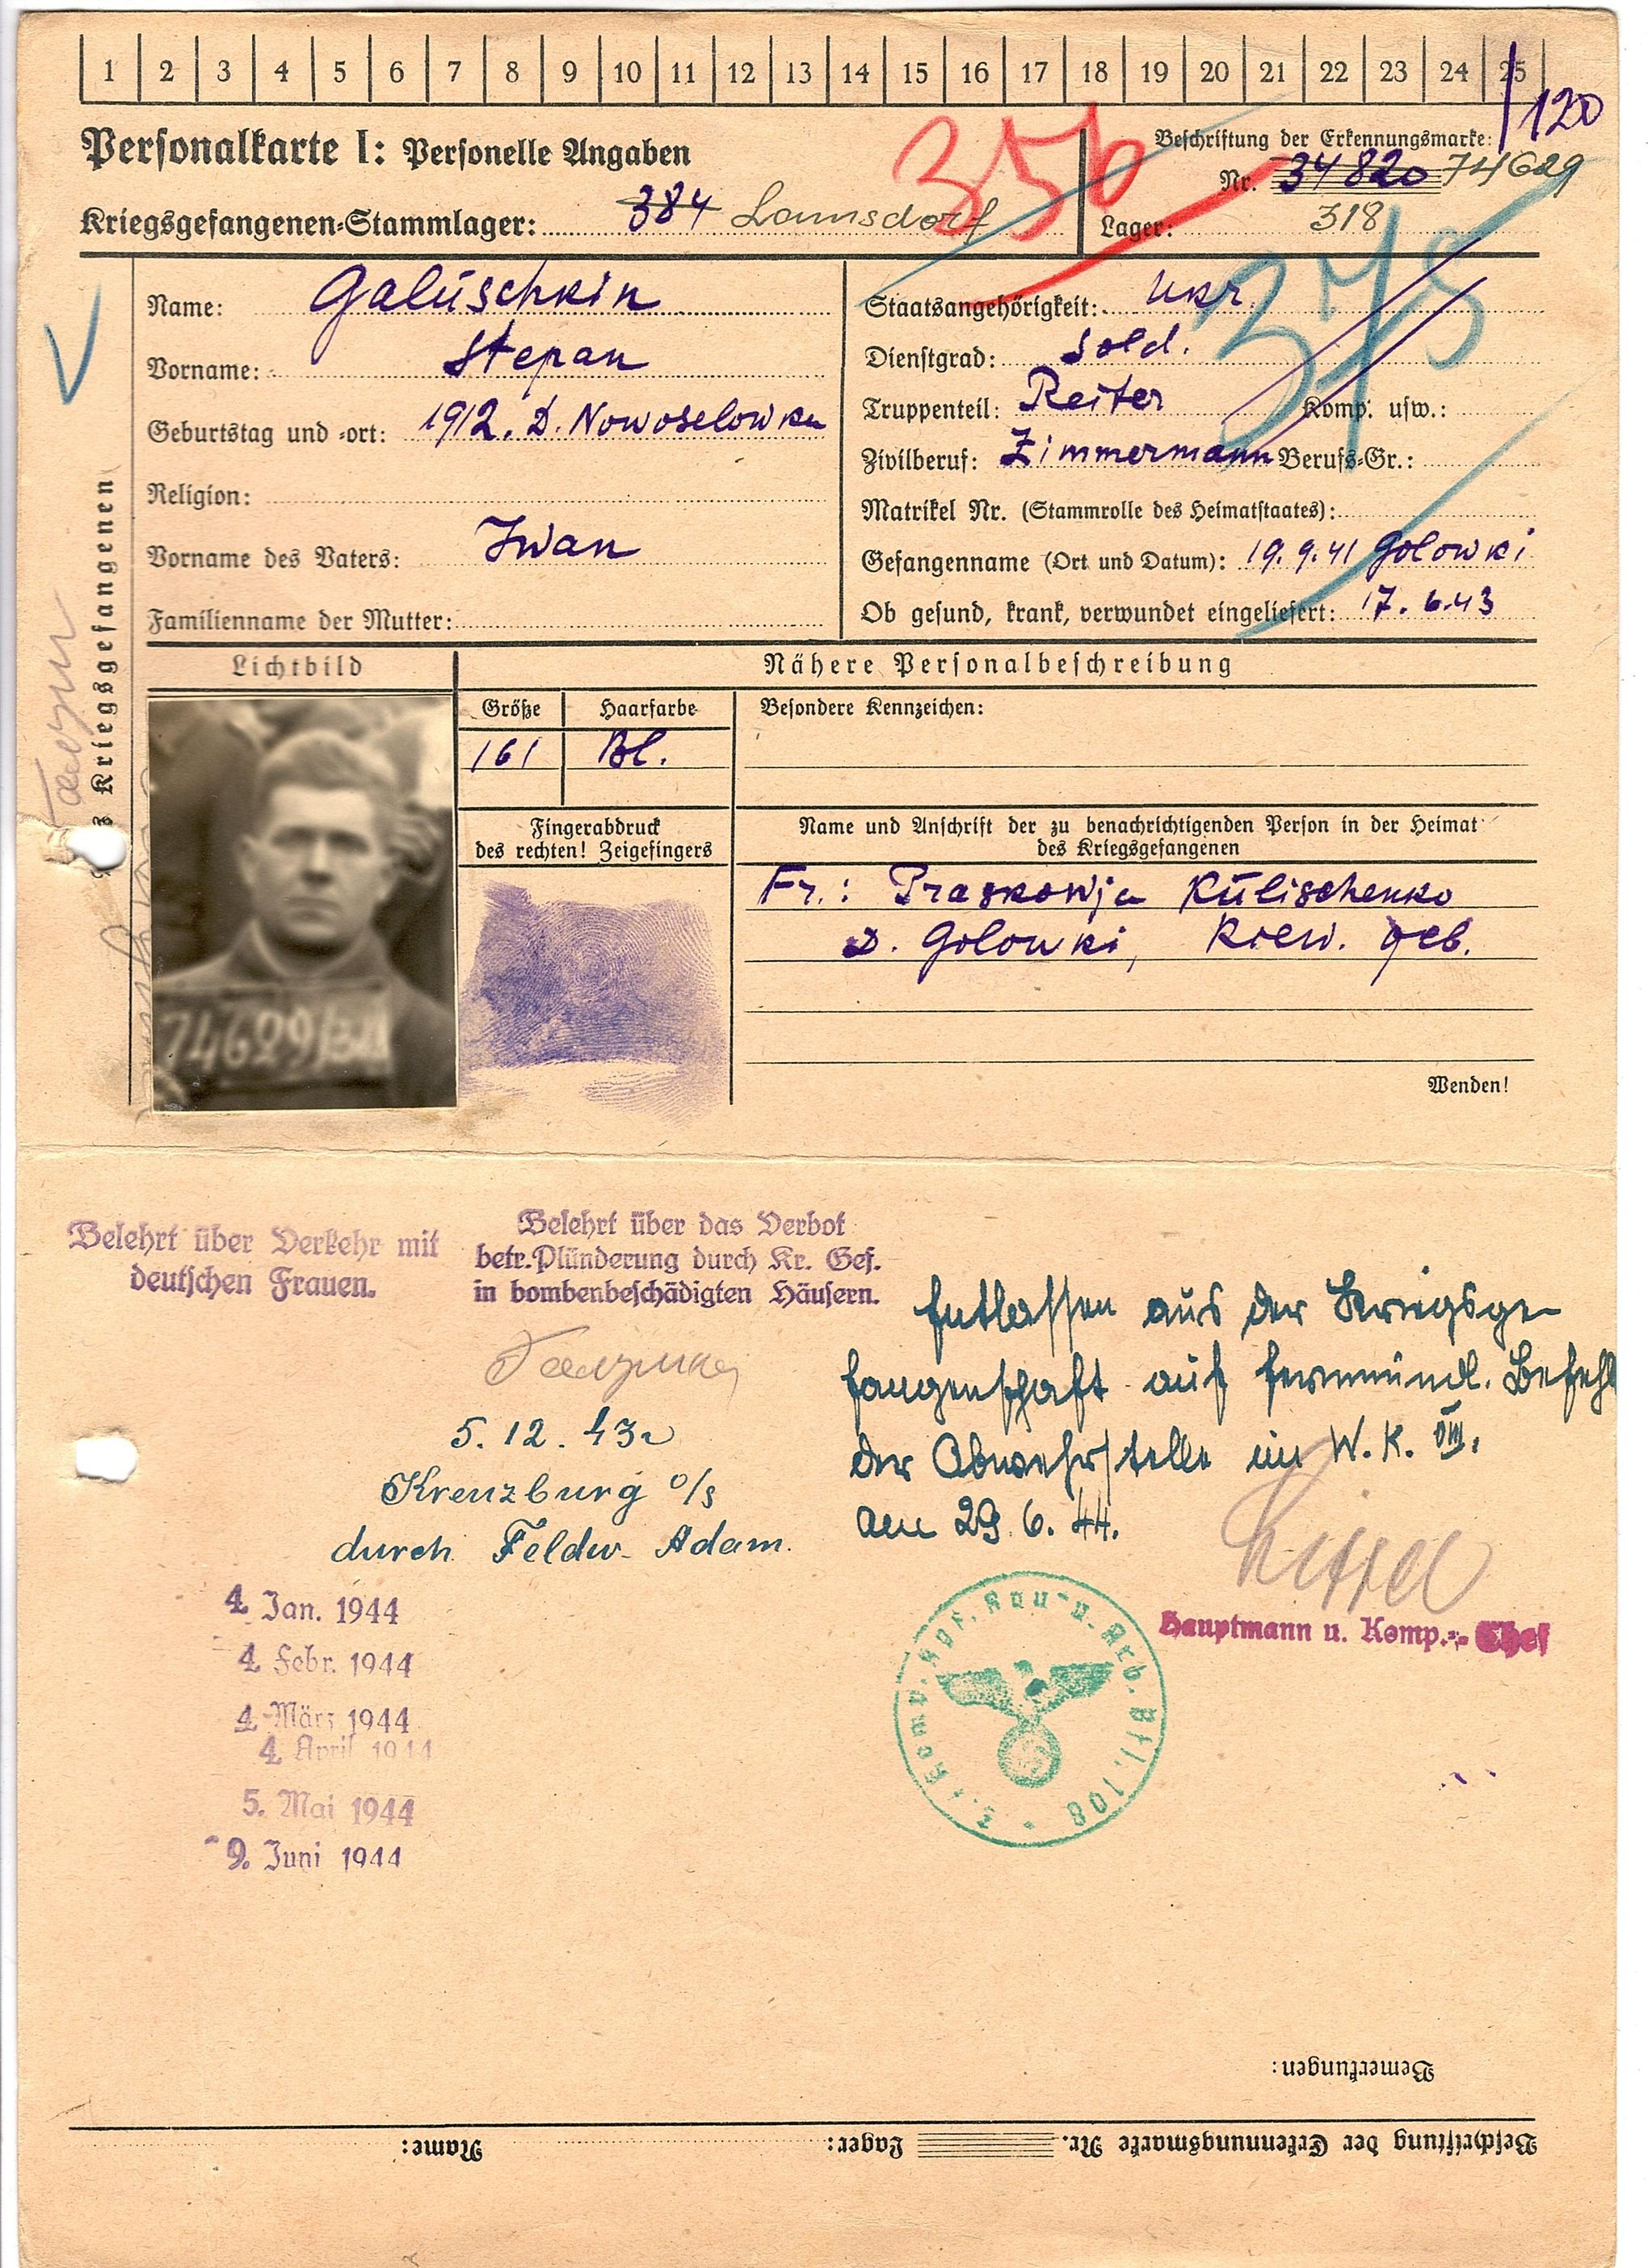 1 2 3 4 5 6 7 8 9 10 11 12 13 14 15 16 17 18 19 20 21 22 23 24 25
120
Personalkarte I: Personelle Angaben
356
Beschriftung der Erkennungsmarke:
Nr. 34820 74629
Kriegsgefangenen-Stammlager: 384 Lamsdorf
Lager: 318
375
Name: Galüschkin
Vorname: Stepan
Geburtstag und -ort: 1912. D. Nowoselowka
Religion:
Vorname des Vaters: Iwan
Familienname der Mutter:
Staatsangehörigkeit: Ukr.
Dienstgrad: Sold.
Truppenteil: Reiter Komp. usw.:
Zivilberuf: Zimmermann Berufs-Gr.:
Matrikel Nr. (Stammrolle des Heimatstaates):
Gefangenname (Ort und Datum): 19.9.41 Golowki
Ob gesund, krank, verwundet eingeliefert: 17.6.43
Kriegsgefangenen
Lichtbild
74629/318
Nähere Personalbeschreibung
Größe
161
Haarfarbe
Bl.
Besondere Kennzeichen:
Fingerabdruck
des rechten! Zeigefingers
Name und Anschrift der zu benachrichtigenden Person in der Heimat
des Kriegsgefangenen
Fr.: Praskowja Külischenko
D. Golowki, Kiew. Geb.
Wenden!
Belehrt über Verkehr mit
deutschen Frauen.
Belehrt über das Verbot
betr. Plünderung durch Kr. Gef.
in bombenbeschädigten Häusern.
5.12.43
Kreuzburg O/S
durch Feldw. Adam.
4. Jan. 1944
4. Febr. 1944
4. März 1944
4. April 1944
5. Mai 1944
9. Juni 1944
Entlassen aus der Kriegsge-
fangenschaft auf fernmündl. Befehl
der Abwehrstelle im W.K. VIII.
am 29.6.44.
Hauptmann u. Komp.-Chef
Bau- u. Arb. Btl. 108
Bemerkungen:
Beschriftung der Erkennungsmarke Nr. Lager: Name: